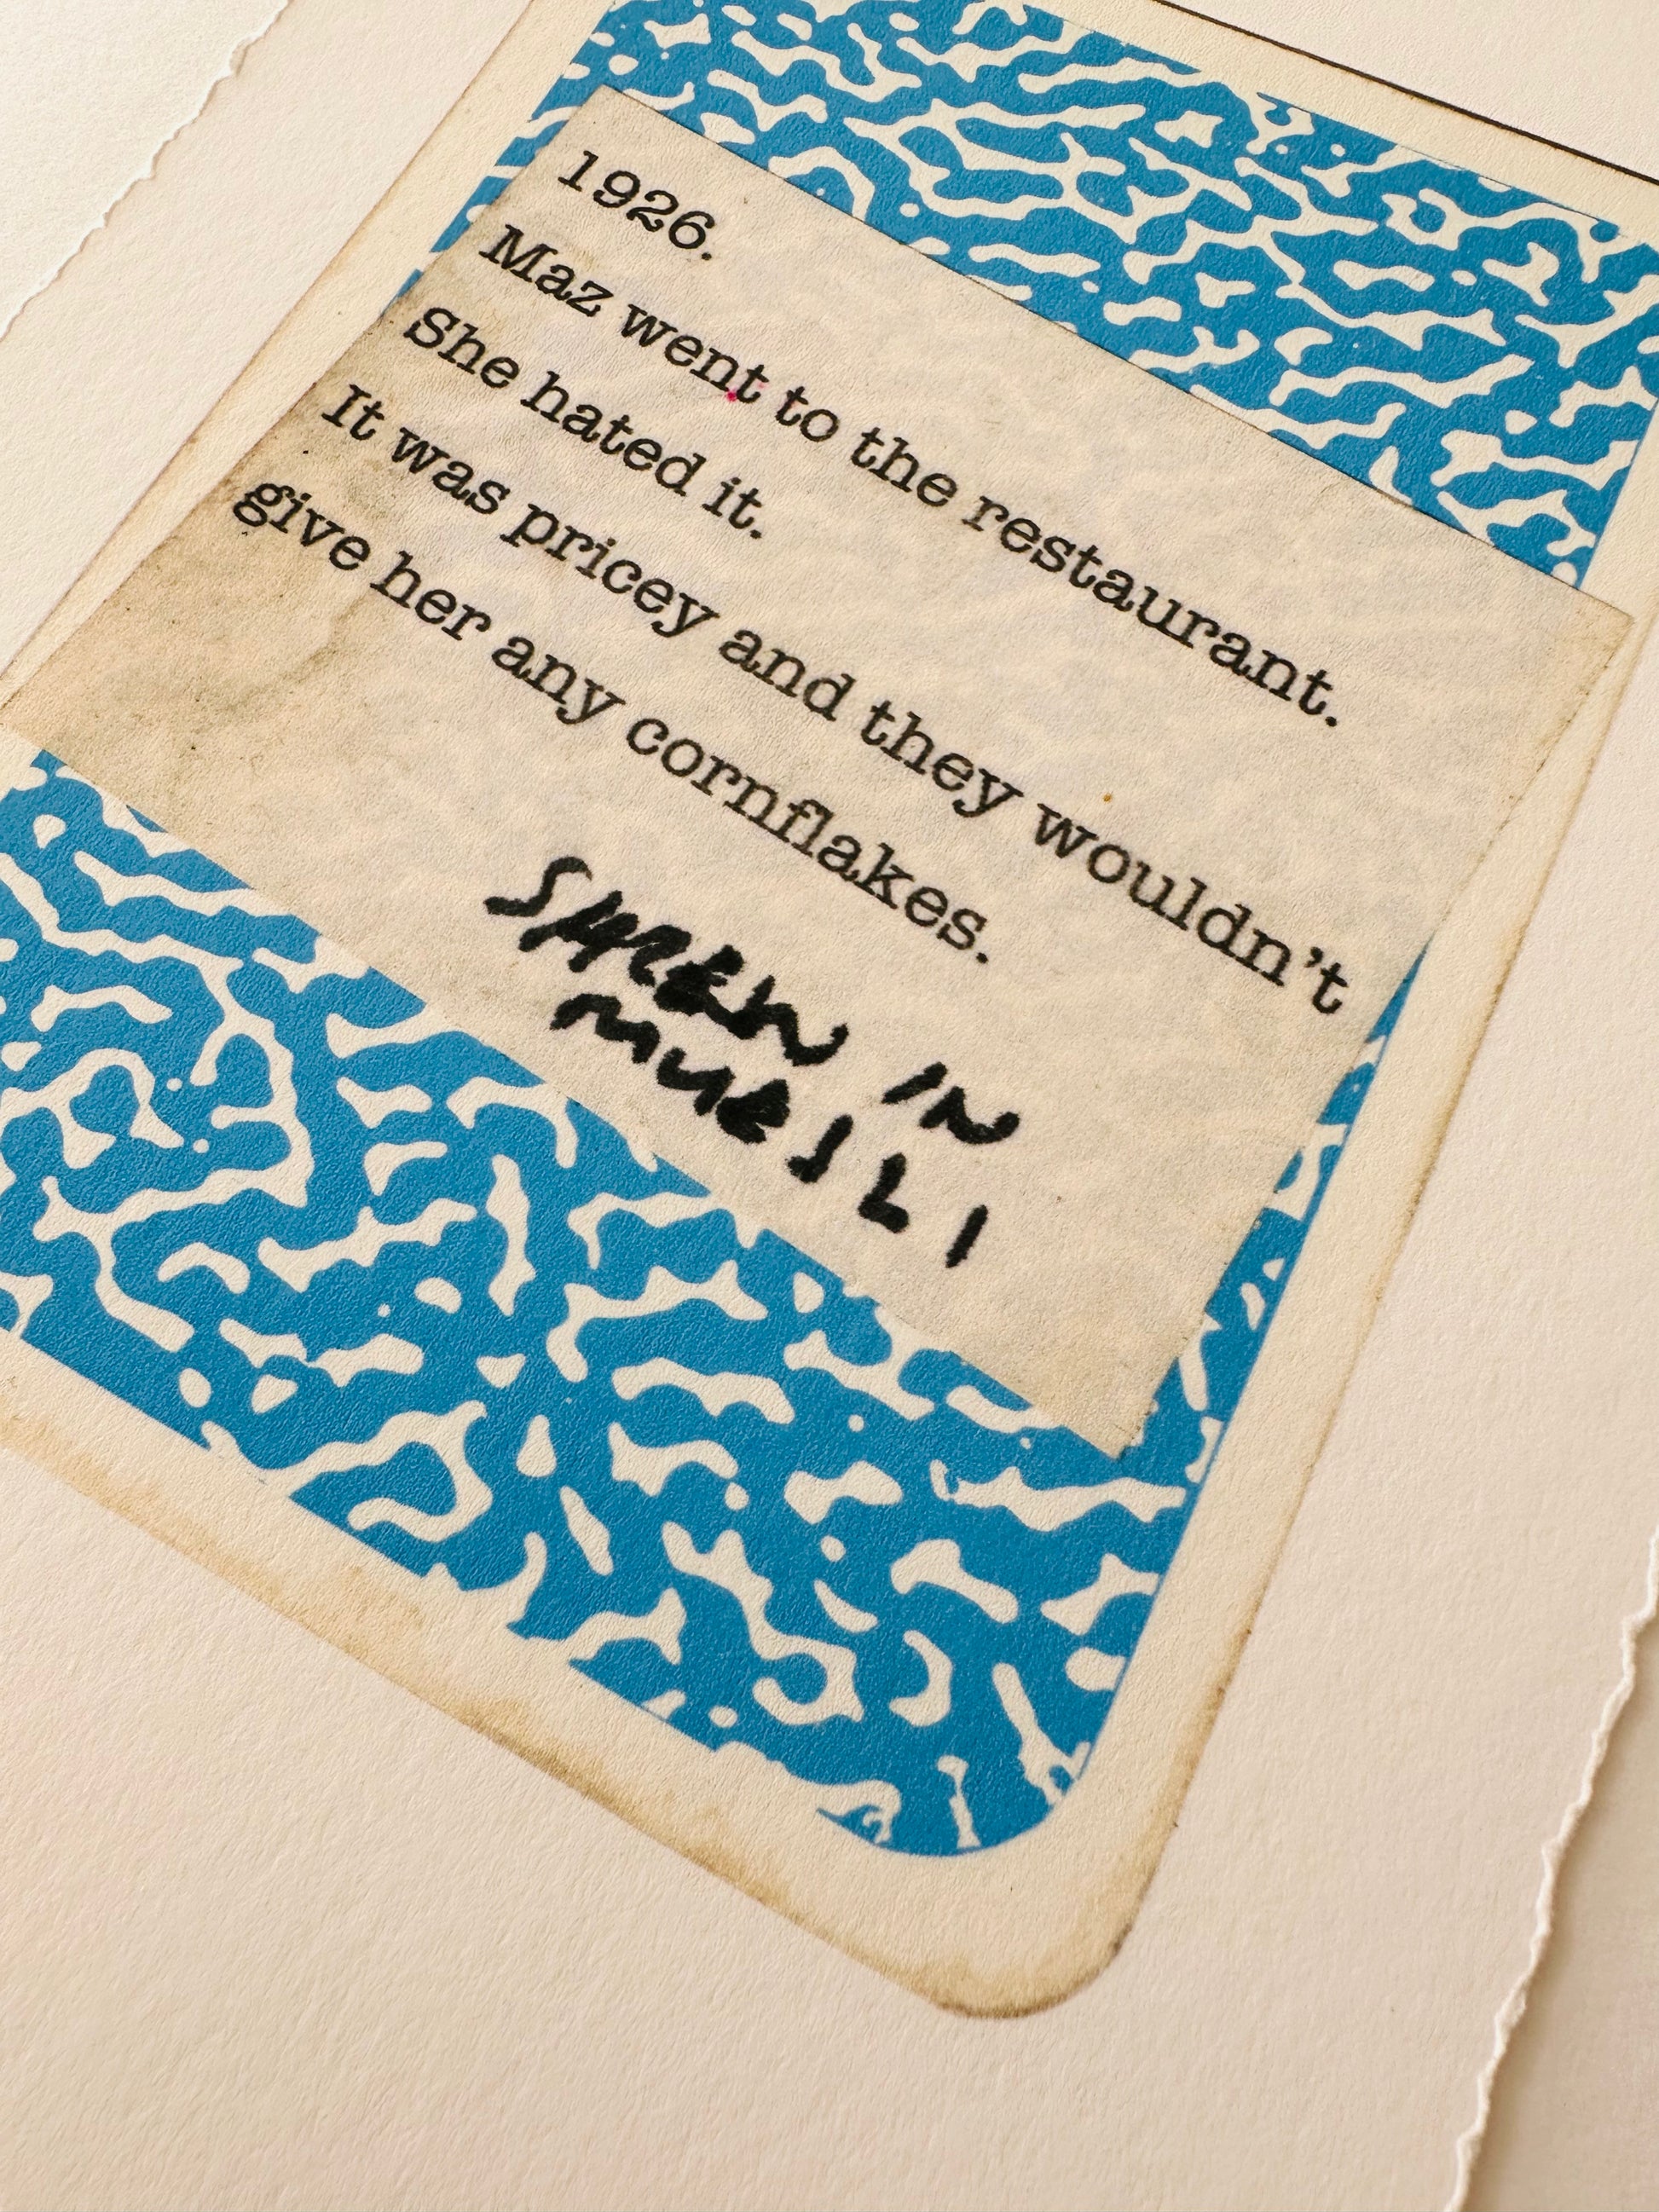 1926.
Maz went to the restaurant.
She hated it.
It was pricey and they wouldn't
give her any cornflakes.
SHREW IN
MUESLI